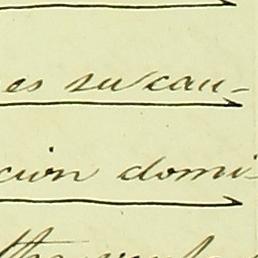 es su cau-
cion domi-